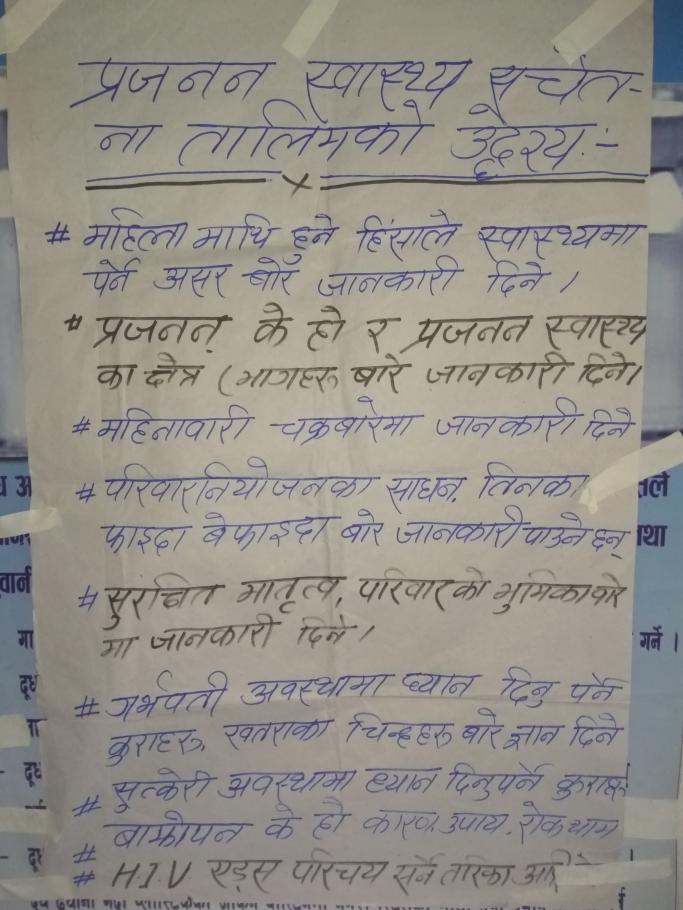 प्रजनन स्वास्थ्य सचेत-
ना तालिमको उद्देश्य :-
# महिला माथि हुने हिंसाले स्वास्थ्यमा
पर्ने असर बारे जानकारी दिने ।
# प्रजनन के हो र प्रजनन स्वास्थ्य
का क्षेत्र (भागहरु बारे जानकारी दिने।
# महिनावारी चक्रबारेमा जानकारी दिने
# परिवारनियोजनका साधन, तिनका
फाइदा बेफाइदा बारे जानकारी पाउने छन्
# सुरक्षित मातृत्व, परिवारको भुमिकाबारे
मा जानकारी दिने ।
# गर्भवती अवस्थामा ध्यान दिनु पर्ने
कुराहरु, खतराका चिन्हहरु बारे ज्ञान दिने
# सुत्केरी अवस्थामा ध्यान दिनुपर्ने कुराहरु
# बाझोपन के हो कारण, उपाय, रोकथाम
# H.I.V एड्स परिचय सर्ने तरिका आदि
तले
था
गर्ने ।